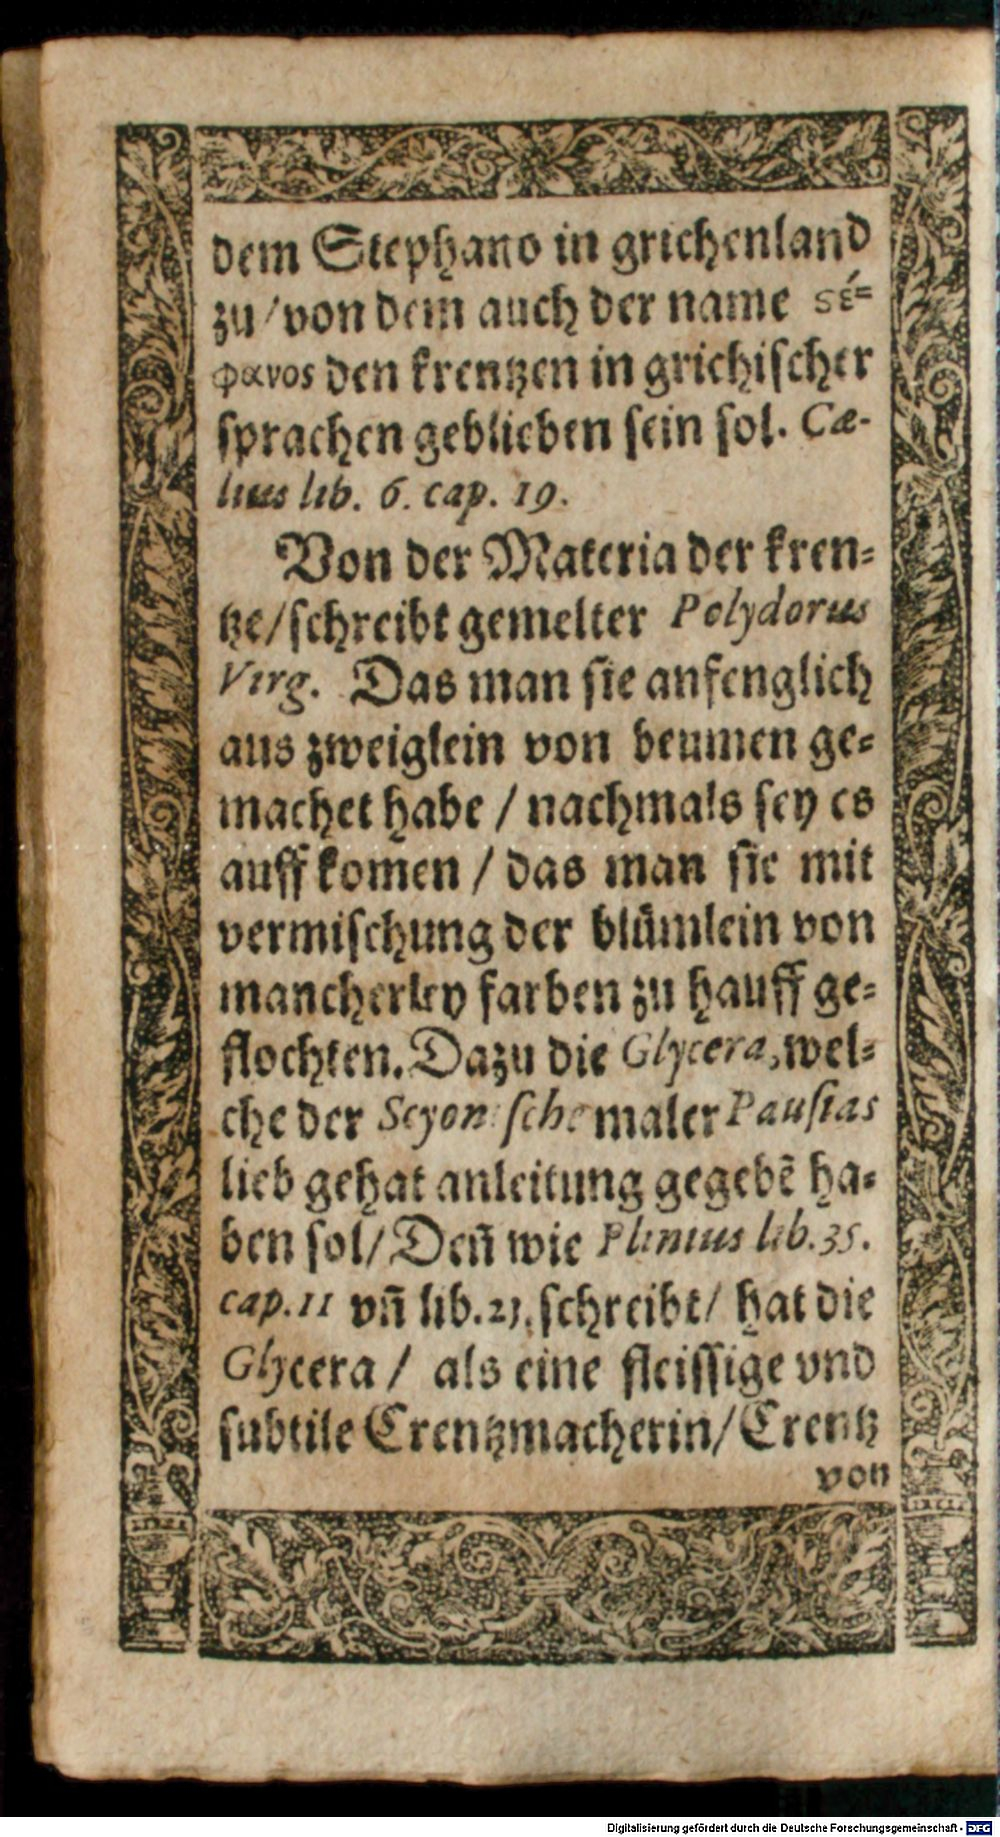 dem Stephano in grichenland
zu/von dem auch der name ϛέ=
φανος den krentzen in grichischer
sprachen geblieben sein sol. Cæ-
lius lib. 6. cap. 19.
Von der Materia der kren=
tze/schreibt gemelter Polydorus
Virg. Das man sie anfenglich
aus zweiglein von beumen ge=
machet habe / nachmals sey es
auff komen / das man sie mit
vermischung der blümlein von
mancherley farben zu hauff ge=
flochten. Dazu die Glycera, wel=
che der Scyonische maler Pausias
lieb gehat anleitung gegebē ha=
ben sol/ Deñ wie Plinius lib. 35.
cap. 11 vñ lib. 21. schreibt/ hat die
Glycera / als eine fleissige vnd
subtile Crentzmacherin/ Crentz
von
Digitalisierung gefördert durch die Deutsche Forschungsgemeinschaft - DFG